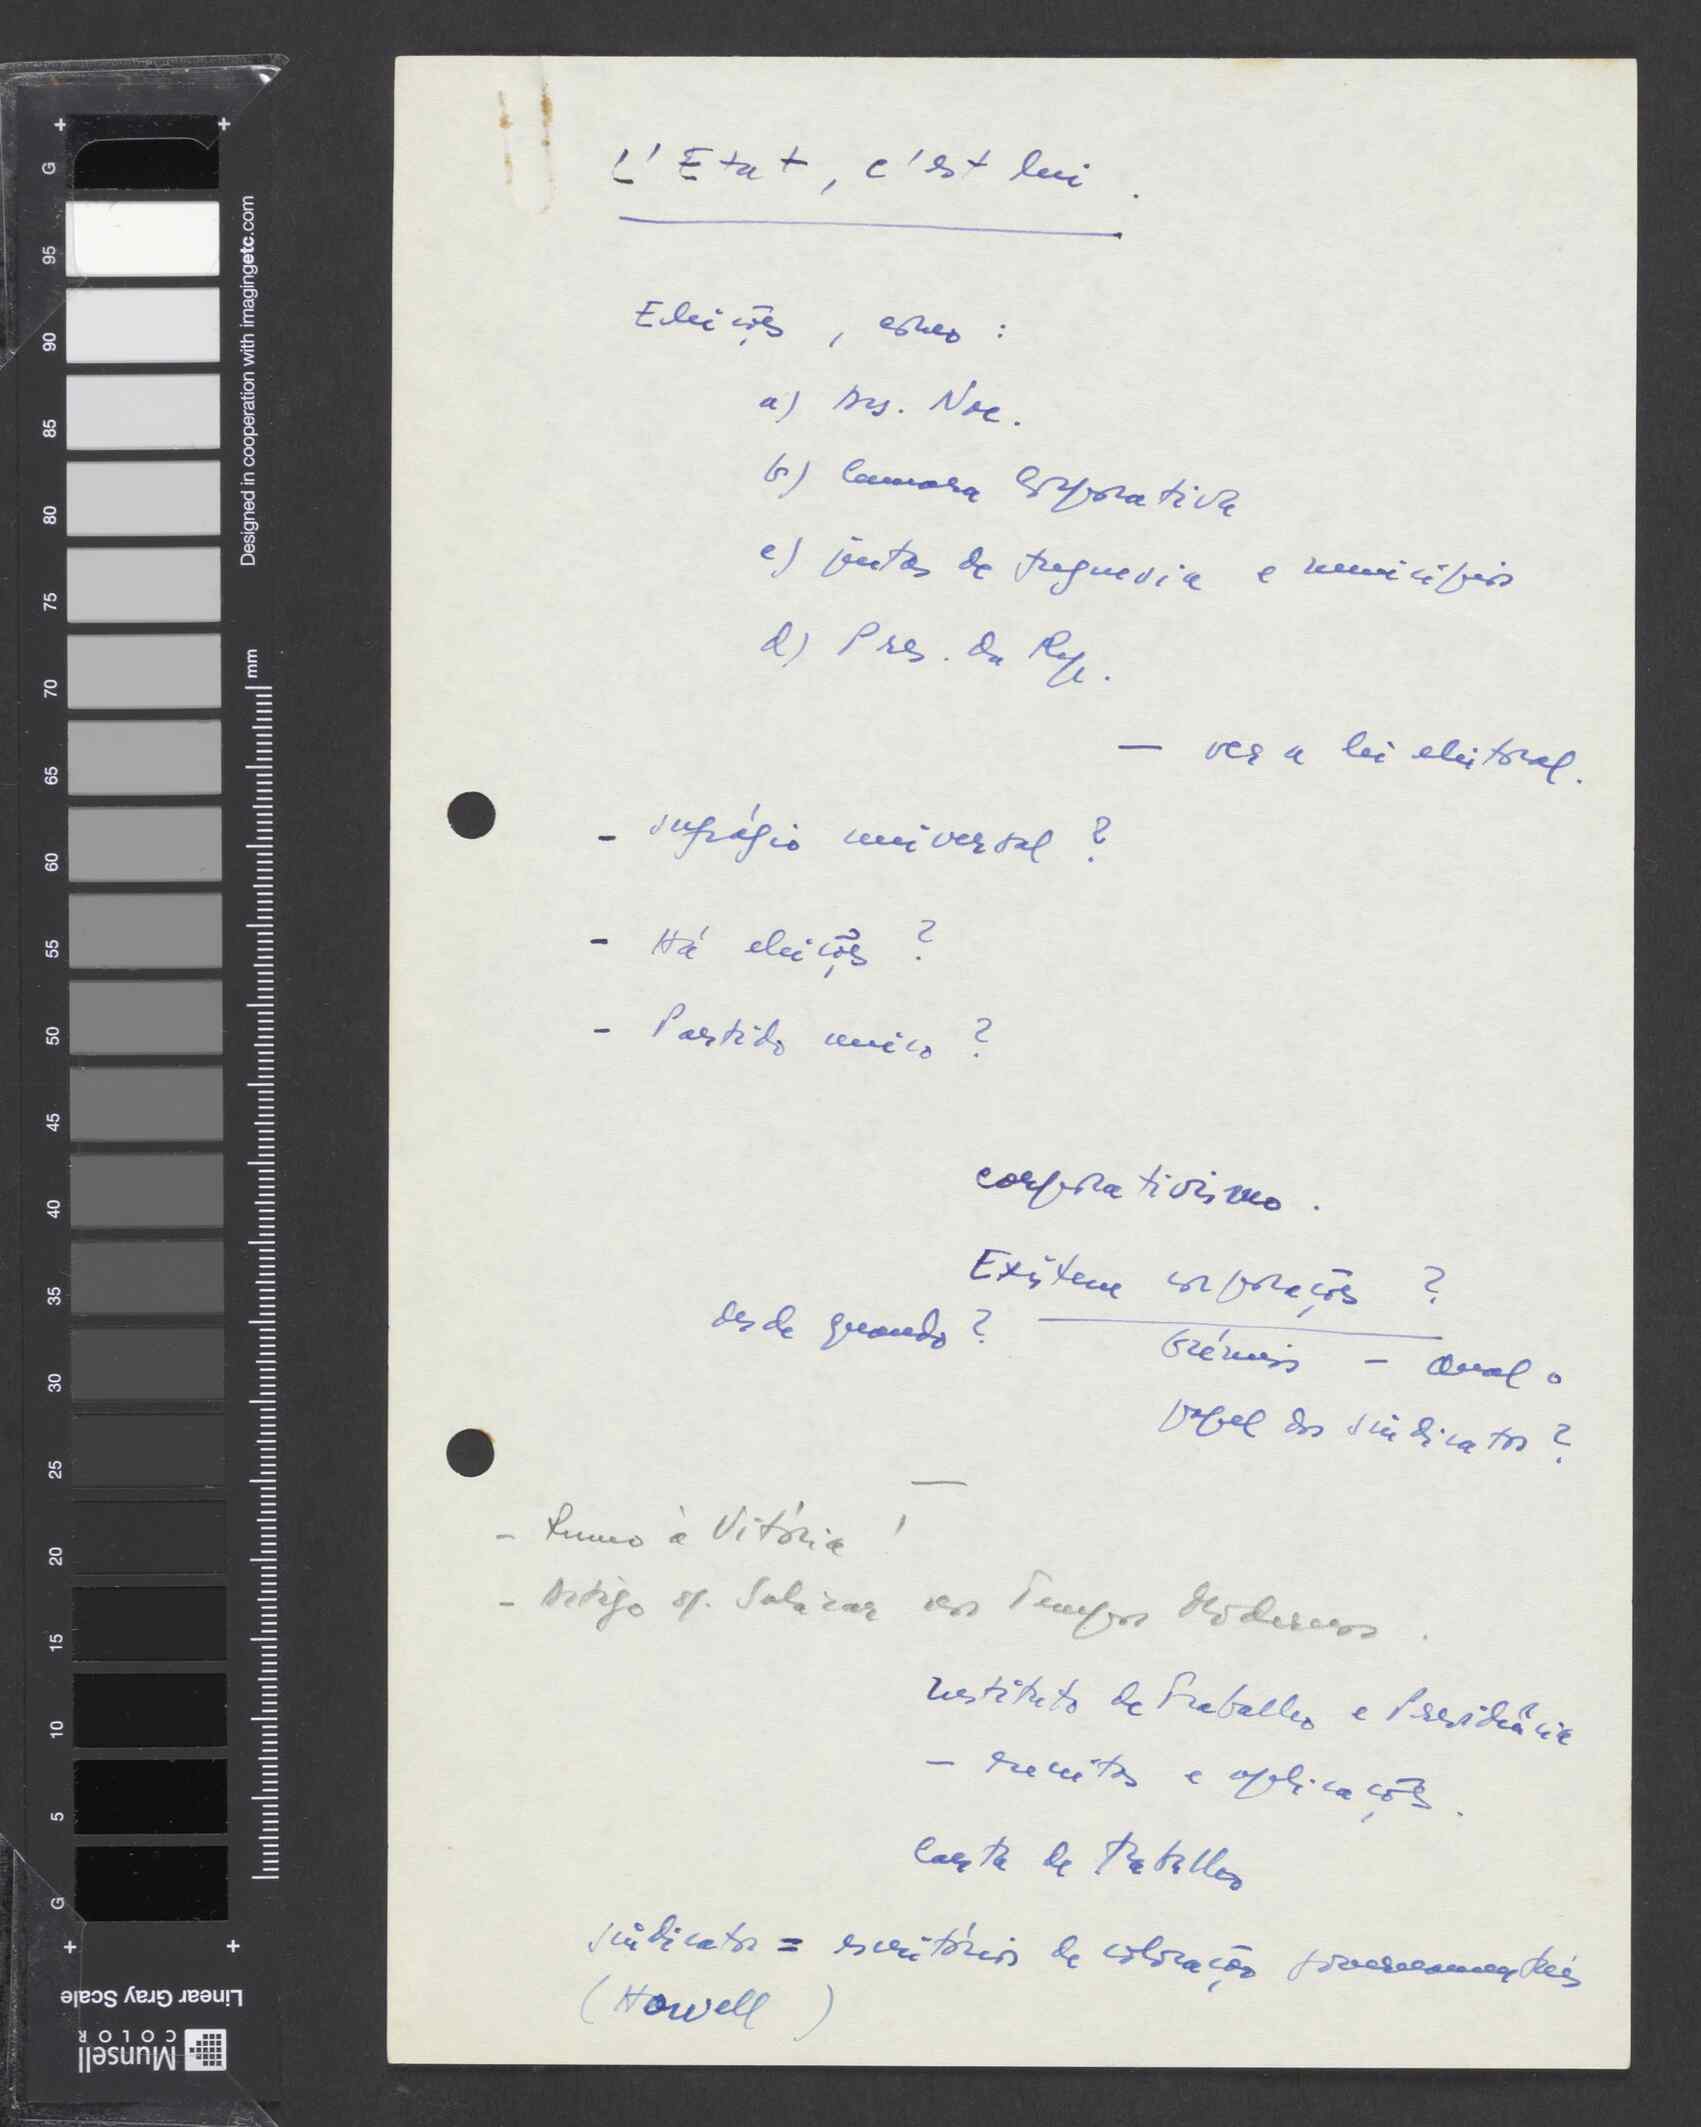 L'Etat, c'est lui.
Eleições, como :
a) Ass. Nac.
b) Camara Corporativa
c) juntas de freguesia e municípios
d) Pres. da Rep.
— ver a lei eleitoral.
- sufrágio universal ?
- Há eleições ?
- Partido unico ?
corporativismo.
Existem corporações ?
desde quando ?
Grémios - Qual o
papel dos sindicatos ?
—
- Rumo à Vitória !
- Artigo s/. Salazar nos Tempos Modernos.
Instituto de Trabalho e Previdência
- receitas e aplicações.
Carta de trabalho
sindicatos = escritórios de colocação governamentais
(Howell)
G
95
90
85
80
75
70
65
60
55
50
45
40
35
30
25
20
15
10
5
G
Designed in cooperation with imagingetc.com
mm
Linear Gray Scale
Munsell
COLOR